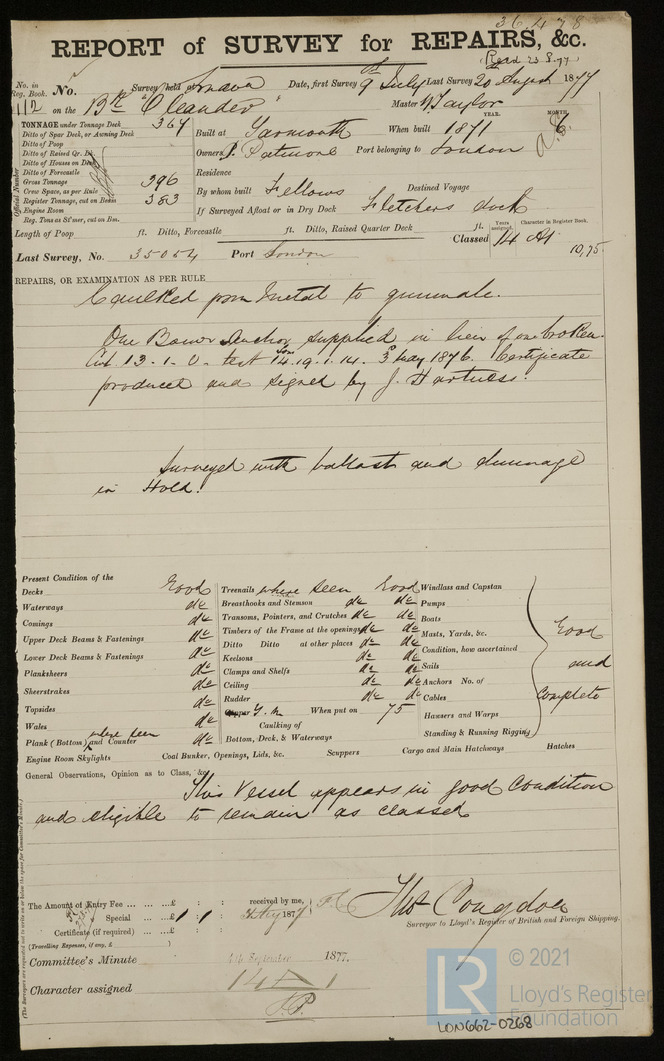 36,478
REPORT of SURVEY for REPAIRS, &c.
(Read 23.8.77)
No. in Reg. Book. No. Survey held at Date, first Survey 9th July Last Survey 20 August 1877
112 on the Bk "Oleander" Master W. Taylor
TONNAGE under Tonnage Deck 364
Ditto of Spar Deck, or Awning Deck
Ditto of Poop
Ditto of Raised Qr. Dk.
Ditto of Houses on Deck
Ditto of Forecastle
Gross Tonnage 396
Crew Space, as per Rule
Register Tonnage, cut on Beam 383
Engine Room
Reg. Tons as St'mer, cut on Bm.
Official Number
Built at Yarmouth When built 1871 YEAR. MONTH. 6
Owners P. Patmore Port belonging to London
Residence
By whom built Fellows Destined Voyage
If Surveyed Afloat or in Dry Dock Fletchers dock
Length of Poop ft. Ditto, Forecastle ft. Ditto, Raised Quarter Deck ft. Years assigned. Character in Register Book.
Classed 14 A1
10,75
Last Survey, No. 35054 Port London
REPAIRS, OR EXAMINATION AS PER RULE
Caulked from metal to gunwale.
One Bower Anchor supplied in lieu of one broken.
Cwt 13.1.0. test Tons 14.19.1.14. 3 May 1876. Certificate
produced and signed by J. Hartness.
Surveyed with ballast and dunnage
in Hold.
Present Condition of the
Decks Good
Waterways do
Comings do
Upper Deck Beams & Fastenings do
Lower Deck Beams & Fastenings do
Planksheers do
Sheerstrakes do
Topsides do
Wales do
Plank (Bottom) and Counter where seen do
Engine Room Skylights Coal Bunker, Openings, Lids, &c. Scuppers Cargo and Main Hatchways Hatches
Treenails where seen Good
Breasthooks and Stemson do do
Transoms, Pointers, and Crutches do do
Timbers of the Frame at the openings do do
Ditto Ditto at other places do do
Keelsons do do
Clamps and Shelfs do do
Ceiling do do
Rudder do do
Copper Y.M. When put on 75
Caulking of
Bottom, Deck, & Waterways
Windlass and Capstan
Pumps
Boats
Masts, Yards, &c.
Condition, how ascertained
Sails
Anchors No. of
Cables
Hawsers and Warps
Standing & Running Rigging
Good
and
Complete
General Observations, Opinion as to Class, &c.
This Vessel appears in good Condition
and eligible to remain as classed
The Amount of Entry Fee £ : : received by me,
Special £ 1 : 1 : 187
Certificate (if required) £ : :
(Travelling Expenses, if any, £ )
Thos Congdon
Surveyor to Lloyd's Register of British and Foreign Shipping.
Committee's Minute September 1877.
Character assigned 14 A 1
(The Surveyors are requested not to write on or below the space for Committee's Minute.)
© 2021
LR Lloyd's Register
Foundation
LON662-0268